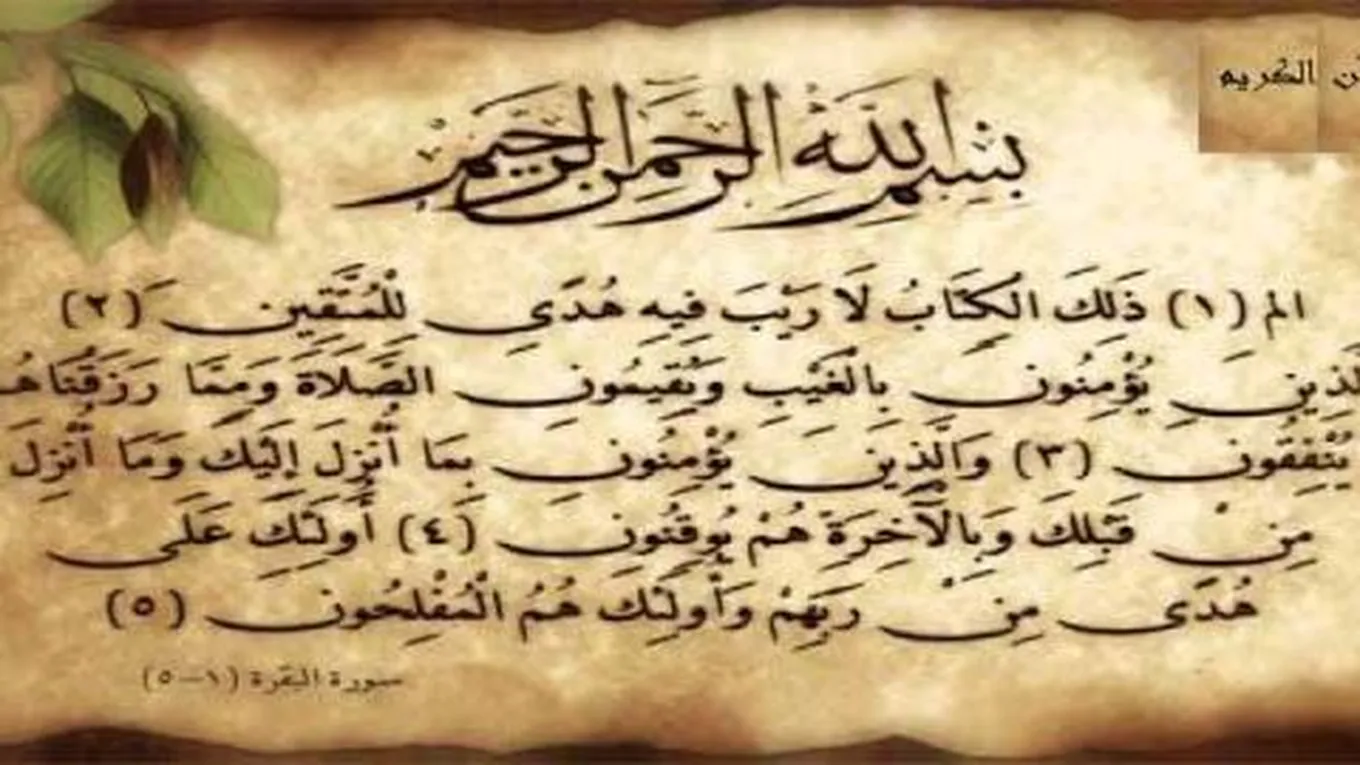 ن الكريم
بِسْمِ اللَّهِ الرَّحْمَنِ الرَّحِيمِ
الم (١) ذَلِكَ الْكِتَابُ لَا رَيْبَ فِيهِ هُدًى لِلْمُتَّقِينَ (٢)
لَّذِينَ يُؤْمِنُونَ بِالْغَيْبِ وَيُقِيمُونَ الصَّلَاةَ وَمِمَّا رَزَقْنَاهُ
يُنْفِقُونَ (٣) وَالَّذِينَ يُؤْمِنُونَ بِمَا أُنْزِلَ إِلَيْكَ وَمَا أُنْزِلَ
مِنْ قَبْلِكَ وَبِالْآَخِرَةِ هُمْ يُوقِنُونَ (٤) أُولَئِكَ عَلَى
هُدًى مِنْ رَبِّهِمْ وَأُولَئِكَ هُمُ الْمُفْلِحُونَ (٥)
سورة البقرة (١-٥)